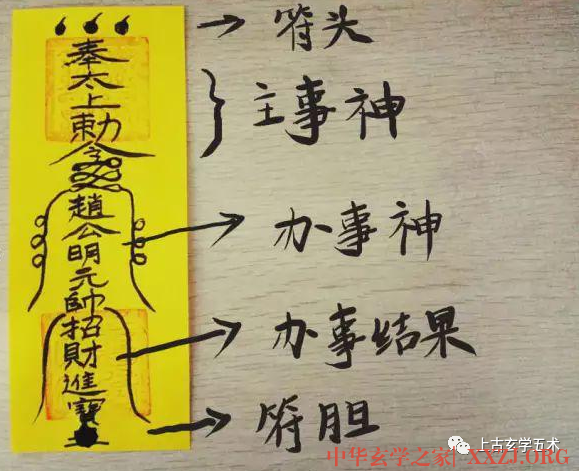 奉太上勅令
趙公明元帥招財進寶
符头
主事神
办事神
办事结果
符胆
上古玄学五术
中华玄学之家 XXZJ.ORG